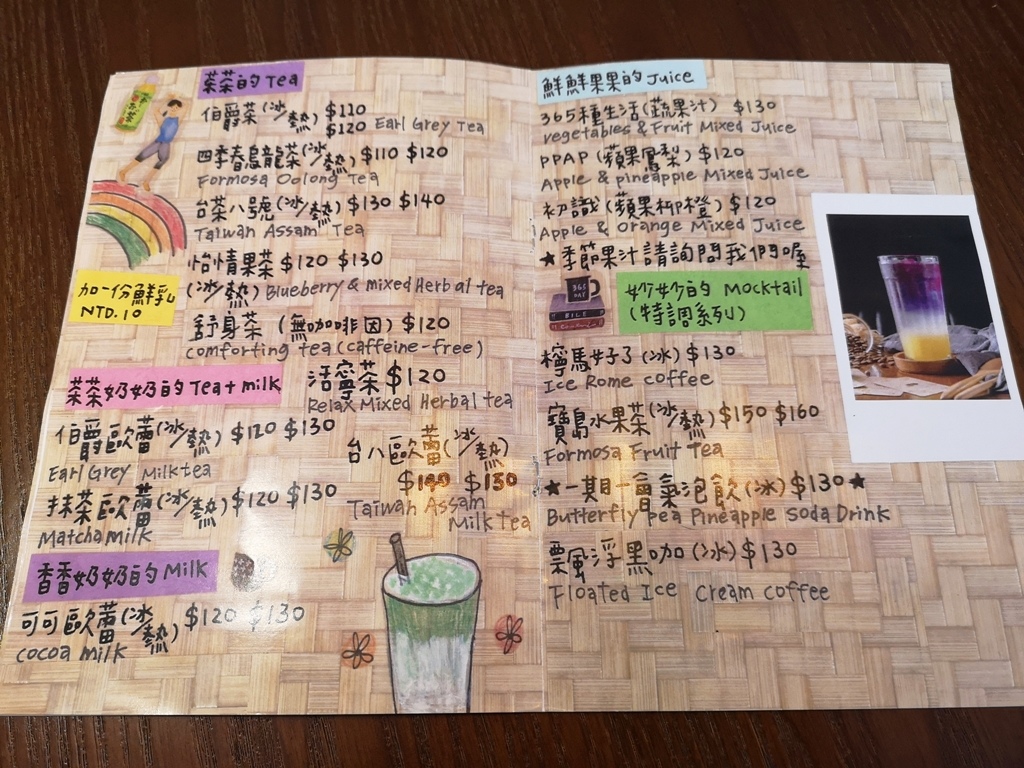 茶茶的 Tea
伯爵茶(冰/熱) $110
$120 Earl Grey Tea
四季春烏龍茶(冰/熱) $110 $120
Formosa Oolong Tea
台茶八號(冰/熱) $130 $140
Taiwan Assam Tea
怡情果茶 $120 $130
(冰/熱) Blueberry & mixed Herbal tea
加一份鮮乳
NTD.10
舒身茶 (無咖啡因) $120
comforting tea (caffeine-free)
活寧茶 $120
Relax Mixed Herbal tea
茶茶奶奶的 Tea + milk
伯爵歐蕾(冰/熱) $120 $130
Earl Grey Milktea
台八歐蕾(冰/熱)
Taiwan Assam
Milk Tea
抹茶歐蕾(冰/熱) $120 $130
Matcha milk
香香奶奶的 Milk
可可歐蕾(冰/熱) $120 $130
cocoa milk
鮮鮮果果的 Juice
365種生活(蔬果汁) $130
vegetables & Fruit Mixed Juice
PPAP (蘋果鳳梨) $120
Apple & pineapple Mixed Juice
初識(蘋果柳橙) $120
Apple & Orange Mixed Juice
★季節果汁請詢問我們喔
365
DAY
BILE
妳妳的 Mocktail
(特調系列)
檸馬好了(冰) $130
Ice Rome coffee
寶島水果茶(冰/熱) $150 $160
Formosa Fruit Tea
★一期一會氣泡飲(冰) $130★
Butterfly pea Pineapple soda Drink
飄風浮黑咖(冰) $130
Floated Ice Cream coffee